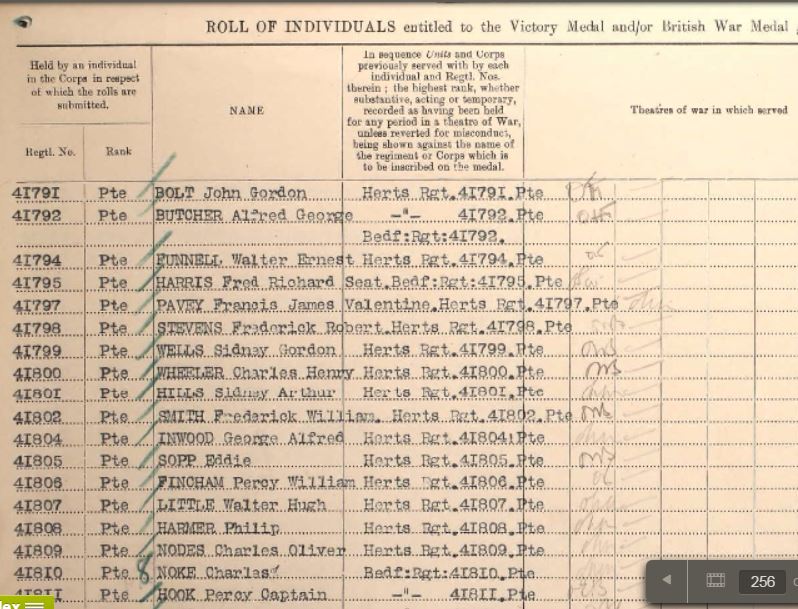 ROLL OF INDIVIDUALS entitled to the Victory Medal and/or British War Medal
Held by an individual
in the Corps in respect
of which the rolls are
submitted.
Regtl. No.
Rank
NAME
In sequence Units and Corps
previously served with by each
individual and Regtl. Nos.
therein ; the highest rank, whether
substantive, acting or temporary,
recorded as having been held
for any period in a theatre of War,
unless reverted for misconduct,
being shown against the name of
the regiment or Corps which is
to be inscribed on the medal.
Theatres of war in which served
41791 Pte BOLT John Gordon Herts Rgt.41791.Pte
41792 Pte BUTCHER Alfred George -"- 41792.Pte
Bedf:Rgt:41792.
41794 Pte FUNNELL Walter Ernest Herts Rgt.41794.Pte
41795 Pte HARRIS Fred Richard Seat.Bedf:Rgt:41795.Pte
41797 Pte PAVEY Francis James Valentine.Herts Rgt.41797.Pte
41798 Pte STEVENS Frederick Robert.Herts Rgt.41798.Pte
41799 Pte WELLS Sidney Gordon Herts Rgt.41799.Pte
41800 Pte WHEELER Charles Henry Herts Rgt.41800.Pte
41801 Pte HILLS Sidney Arthur Herts Rgt.41801.Pte
41802 Pte SMITH Frederick William. Herts Rgt.41802.Pte
41804 Pte INWOOD George Alfred Herts Rgt.41804:Pte
41805 Pte SOPP Eddie Herts Rgt.41805.Pte
41806 Pte FINCHAM Percy William Herts Rgt.41806.Pte
41807 Pte LITTLE Walter Hugh Herts Rgt.41807.Pte
41808 Pte HARMER Philip Herts Rgt.41808.Pte
41809 Pte NODES Charles Oliver Herts Rgt.41809.Pte
41810 Pte 8 NOKE Charles Bedf:Rgt:41810.Pte
41811 Pte HOOK Percy Captain -"- 41811.Pte
256